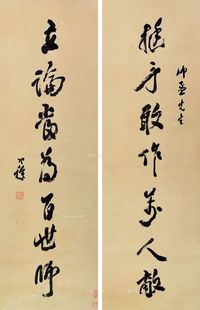 先生
挺身敢作萬人敵
立論當為百世師